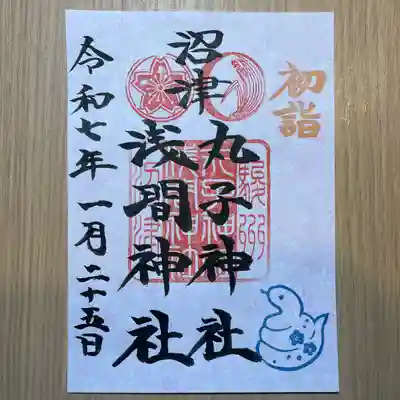 初詣
沼津
丸子神社
浅間神社
令和七年一月二十五日